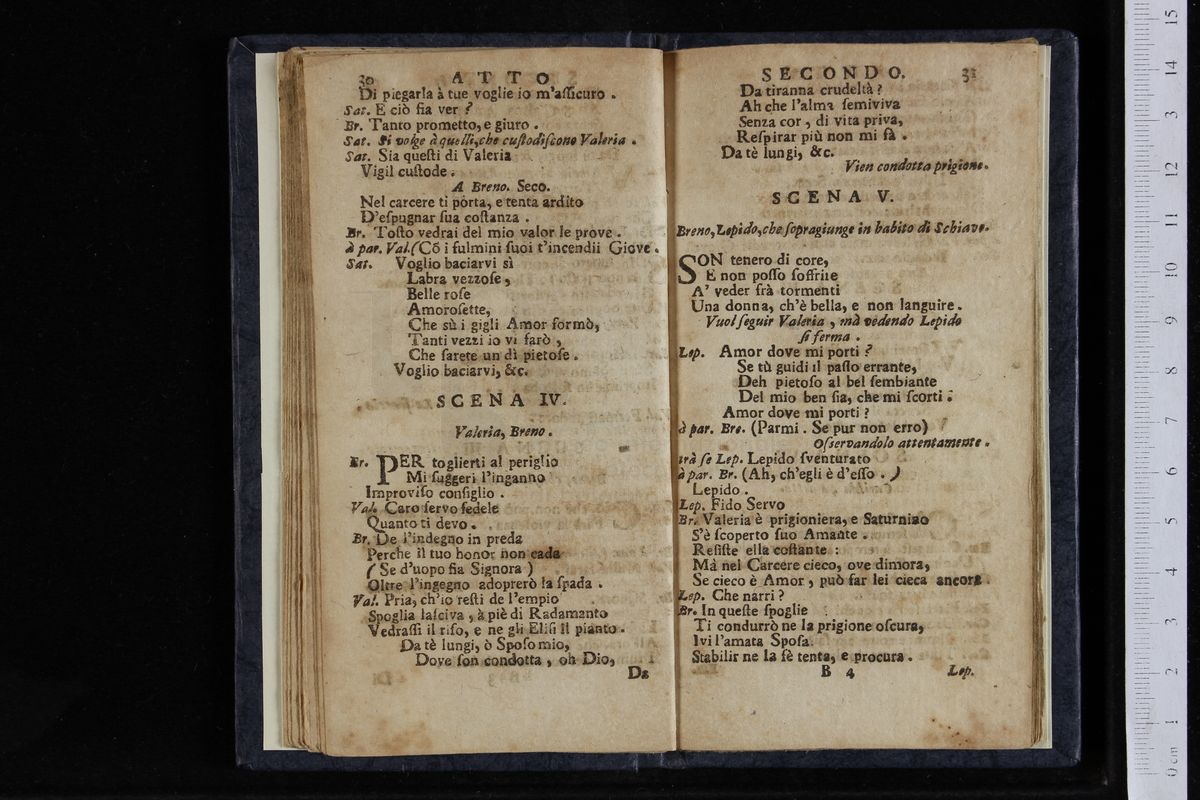 30 ATTO
Di piegarla à tue voglie io m'aſſicuro .
Sat. E ciò ſia ver ?
Br. Tanto prometto, e giuro .
Sat. Si volge à quelli, che cuſtodiſcono Valeria .
Sat. Sia queſti di Valeria
Vigil cuſtode .
A Breno. Seco.
Nel carcere ti porta, e tenta ardito
D'eſpugnar ſua coſtanza .
Br. Toſto vedrai del mio valor le prove .
à par. Val. (Cō i fulmini ſuoi t'incendii Giove .
Sat. Voglio baciarvi sì
Labra vezzoſe ,
Belle roſe
Amoroſette,
Che sù i gigli Amor formò,
Tanti vezzi io vi farò ,
Che ſarete un dì pietoſe .
Voglio baciarvi, &c.
SCENA IV.
Valeria, Breno .
Br. PER toglierti al periglio
Mi ſuggerì l'inganno
Improviſo conſiglio .
Val. Caro ſervo fedele
Quanto ti devo .
Br. De l'indegno in preda
Perche il tuo honor non cada
( Se d'uopo fia Signora )
Oltre l'ingegno adoprerò la ſpada .
Val. Pria, ch'io reſti de l'empio
Spoglia laſciva , à piè di Radamanto
Vedraſſi il riſo, e ne gli Eliſi il pianto .
Da tè lungi, ò Spoſo mio,
Dove ſon condotta , oh Dio,
Da
SECONDO. 31
Da tiranna crudeltà ?
Ah che l'alma ſemiviva
Senza cor , di vita priva,
Reſpirar più non mi fà .
Da tè lungi, &c.
Vien condotta prigione.
SCENA V.
Breno, Lepido, che ſopragiunge in habito di Schiavo.
SON tenero di core,
E non poſſo ſoffrire
A' veder frà tormenti
Una donna, ch'è bella, e non languire .
Vuol ſeguir Valeria , mà vedendo Lepido
ſi ferma .
Lep. Amor dove mi porti ?
Se tù guidi il paſſo errante,
Deh pietoſo al bel ſembiante
Del mio ben ſia, che mi ſcorti .
Amor dove mi porti ?
à par. Bre. (Parmi . Se pur non erro)
Oſservandolo attentamente .
trà ſe Lep. Lepido ſventurato
à par. Br. (Ah, ch'egli è d'eſſo . )
Lepido .
Lep. Fido Servo
Br. Valeria è prigioniera, e Saturnino
S'è ſcoperto ſuo Amante .
Reſiſte ella coſtante :
Mà nel Carcere cieco, ove dimora,
Se cieco è Amor , può far lei cieca ancora .
Lep. Che narri ?
Br. In queſte ſpoglie
Ti condurrò ne la prigione oſcura,
Ivi l'amata Spoſa
Stabilir ne la fè tenta, e procura .
B 4 Lep.
0 cm 1 2 3 4 5 6 7 8 9 10 11 12 13 14 15